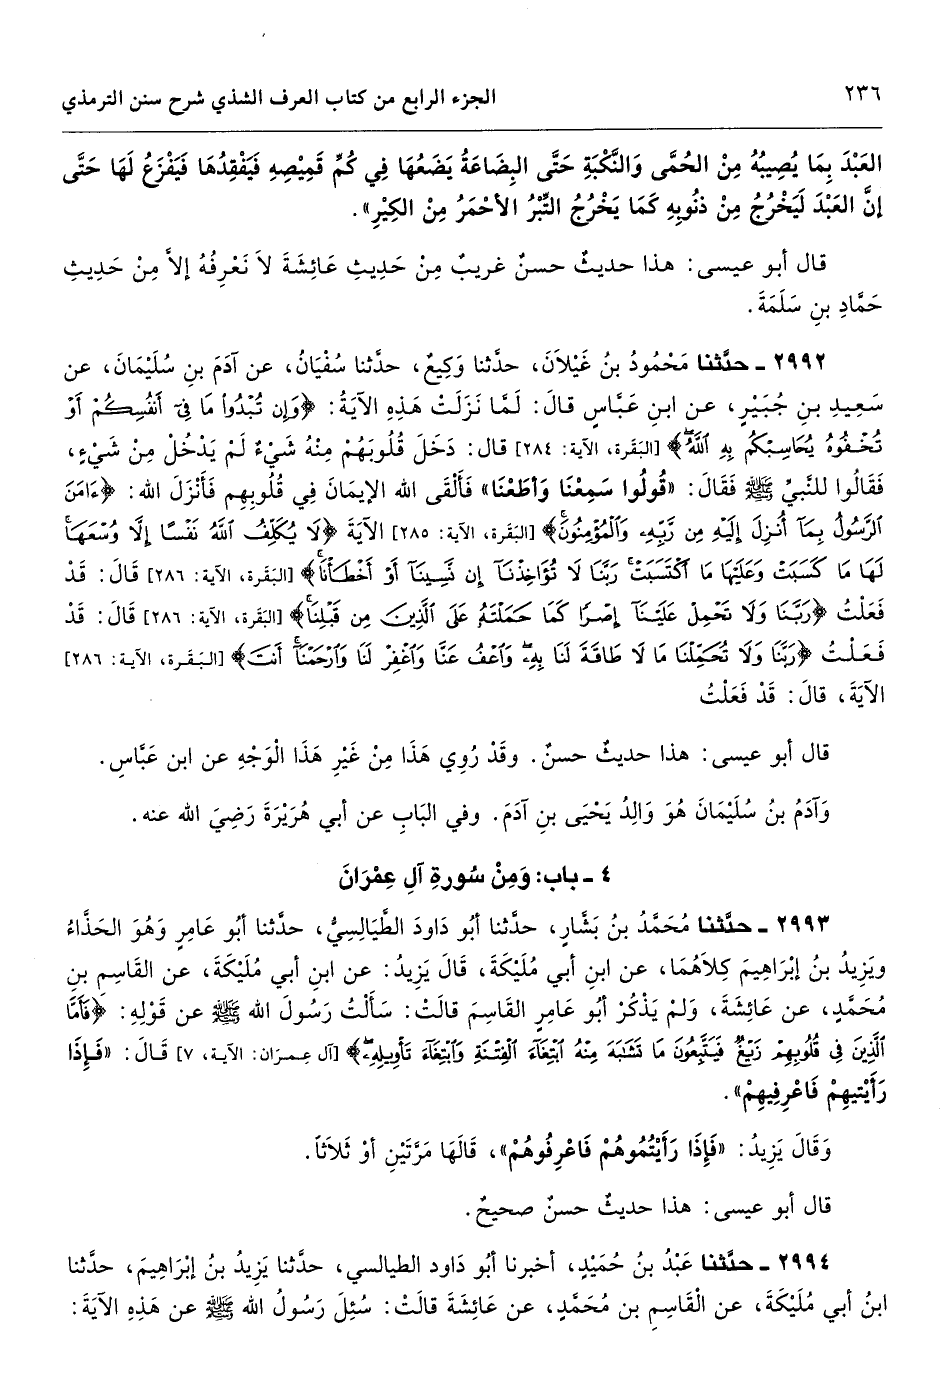 ٢٣٦ الجزء الرابع من كتاب العرف الشذي شرح سنن الترمذي
العَبْدَ بِمَا يُصِيبُهُ مِنْ الحُمَّى وَالنَّكْبَةِ حَتَّى البِضَاعَةُ يَضَعُهَا فِي كُمِّ قَمِيْصِهِ فَيَفْقِدُهَا فَيَفْزَعُ لَهَا حَتَّى
إنَّ العَبْدَ لَيَخْرُجُ مِنْ ذنُوبِهِ كَمَا يَخْرُجُ التِّبْرُ الأحْمَرُ مِنَ الكِيْرِ».
قال أبو عيسى: هذا حديثٌ حسنٌ غريبٌ مِنْ حَدِيثِ عَائِشَةَ لاَ نَعْرِفُهُ إلاَّ مِنْ حَدِيثِ
حَمَّادِ بنِ سَلَمَةَ.
٢٩٩٢ ـ حدَّثنا مَحْمُودُ بنُ غَيْلاَنَ، حدَّثنا وَكِيعٌ، حدَّثنا سُفْيَانُ، عن آدَمَ بنِ سُلَيْمَانَ، عن
سَعِيدِ بنِ جُبَيْرٍ، عن ابنِ عَبَّاسٍ قالَ: لَمَّا نَزَلَتْ هَذِهِ الآيَةُ: ﴿وَإِن تُبْدُوا مَا فِىٓ أَنفُسِكُمْ أَوْ
تُخْفُوهُ يُحَاسِبْكُم بِهِ ٱللَّهُ﴾ [البَقَرة، الآية: ٢٨٤] قال: دَخَلَ قُلُوبَهُمْ مِنْهُ شَيْءٌ لَمْ يَدْخُلْ مِنْ شَيْءٍ،
فَقَالُوا للنَّبيِّ ﷺ فَقَالَ: «قُولُوا سَمِعْنَا وَأطَعْنَا» فَألْقَى الله الإيمَانَ فِي قُلُوبِهِم فَأنْزَلَ الله: ﴿ءَامَنَ
ٱلرَّسُولُ بِمَآ أُنزِلَ إِلَيْهِ مِن رَّبِّهِۦ وَٱلْمُؤْمِنُونَ﴾ [البَقَرة، الآية: ٢٨٥] الآيَةَ ﴿لَا يُكَلِّفُ ٱللَّهُ نَفْسًا إِلَّا وُسْعَهَا
لَهَا مَا كَسَبَتْ وَعَلَيْهَا مَا ٱكْتَسَبَتْ رَبَّنَا لَا تُؤَاخِذْنَآ إِن نَّسِينَآ أَوْ أَخْطَأْنَا﴾ [البَقَرة، الآية: ٢٨٦] قَالَ: قَدْ
فَعَلْتُ ﴿رَبَّنَا وَلَا تَحْمِلْ عَلَيْنَآ إِصْرًا كَمَا حَمَلْتَهُۥ عَلَى ٱلَّذِينَ مِن قَبْلِنَا﴾ [البَقَرة، الآية: ٢٨٦] قَالَ: قَدْ
فَعَلْتُ ﴿رَبَّنَا وَلَا تُحَمِّلْنَا مَا لَا طَاقَةَ لَنَا بِهِۦ وَٱعْفُ عَنَّا وَٱغْفِرْ لَنَا وَٱرْحَمْنَآ أَنتَ﴾ [البَقَرة، الآية: ٢٨٦]
الآيَةَ، قالَ: قَدْ فَعَلْتُ
قال أبو عيسى: هذا حديثٌ حسنٌ. وقَدْ رُوِي هَذَا مِنْ غَيْرِ هَذَا الْوَجْهِ عن ابن عَبَّاسٍ.
وَآدَمُ بنُ سُلَيْمَانَ هُوَ وَالِدُ يَحْيَى بنِ آدَمَ. وفي البَابِ عن أبي هُرَيْرَةَ رَضِيَ الله عنه.
٤ ـ باب: وَمِنْ سُورةِ آلِ عِمْرَانَ
٢٩٩٣ ـ حدَّثنا مُحَمَّدُ بنُ بَشَّارٍ، حدَّثنا أبُو دَاودَ الطَّيالِسيُّ، حدَّثنا أبُو عَامِرٍ وَهُوَ الحَذَّاءُ
ويَزِيدُ بنُ إبْرَاهِيمَ كِلاَهُمَا، عن ابنِ أبي مُلَيْكَةَ، قَالَ يَزِيدُ: عن ابنِ أبي مُلَيْكَةَ، عن القَاسِمِ بنِ
مُحَمَّدٍ، عن عَائِشَةَ، وَلَمْ يَذْكُرْ أبُو عامِرٍ القَاسِمَ قالَتْ: سَألْتُ رَسُولَ الله ﷺ عن قَوْلِهِ: ﴿فَأَمَّا
ٱلَّذِينَ فِى قُلُوبِهِمْ زَيْغٌ فَيَتَّبِعُونَ مَا تَشَٰبَهَ مِنْهُ ٱبْتِغَآءَ ٱلْفِتْنَةِ وَٱبْتِغَآءَ تَأْوِيلِهِۦ﴾ [آل عِمرَان: الآية، ٧] قَالَ: «فَإذَا
رَأيْتيهِمْ فَاعْرِفِيهِمْ».
وَقَالَ يَزِيدُ: «فَإذَا رَأيْتُمُوهُمْ فَاعْرِفُوهُمْ»، قَالَهَا مَرَّتَيْنِ أوْ ثَلاَثاً.
قال أبو عيسى: هذا حديثٌ حسنٌ صحيحٌ.
٢٩٩٤ ـ حدَّثنا عَبْدُ بنُ حُمَيْدٍ، أخبرنا أبُو دَاود الطيالسي، حدَّثنا يَزِيدُ بنُ إبْرَاهِيمَ، حدَّثنا
ابنُ أبي مُلَيْكَةَ، عن الْقَاسِمِ بن مُحَمَّدٍ، عن عَائِشَةَ قالَتْ: سُئِلَ رَسُولُ الله ﷺ عن هَذِهِ الآيَةَ: